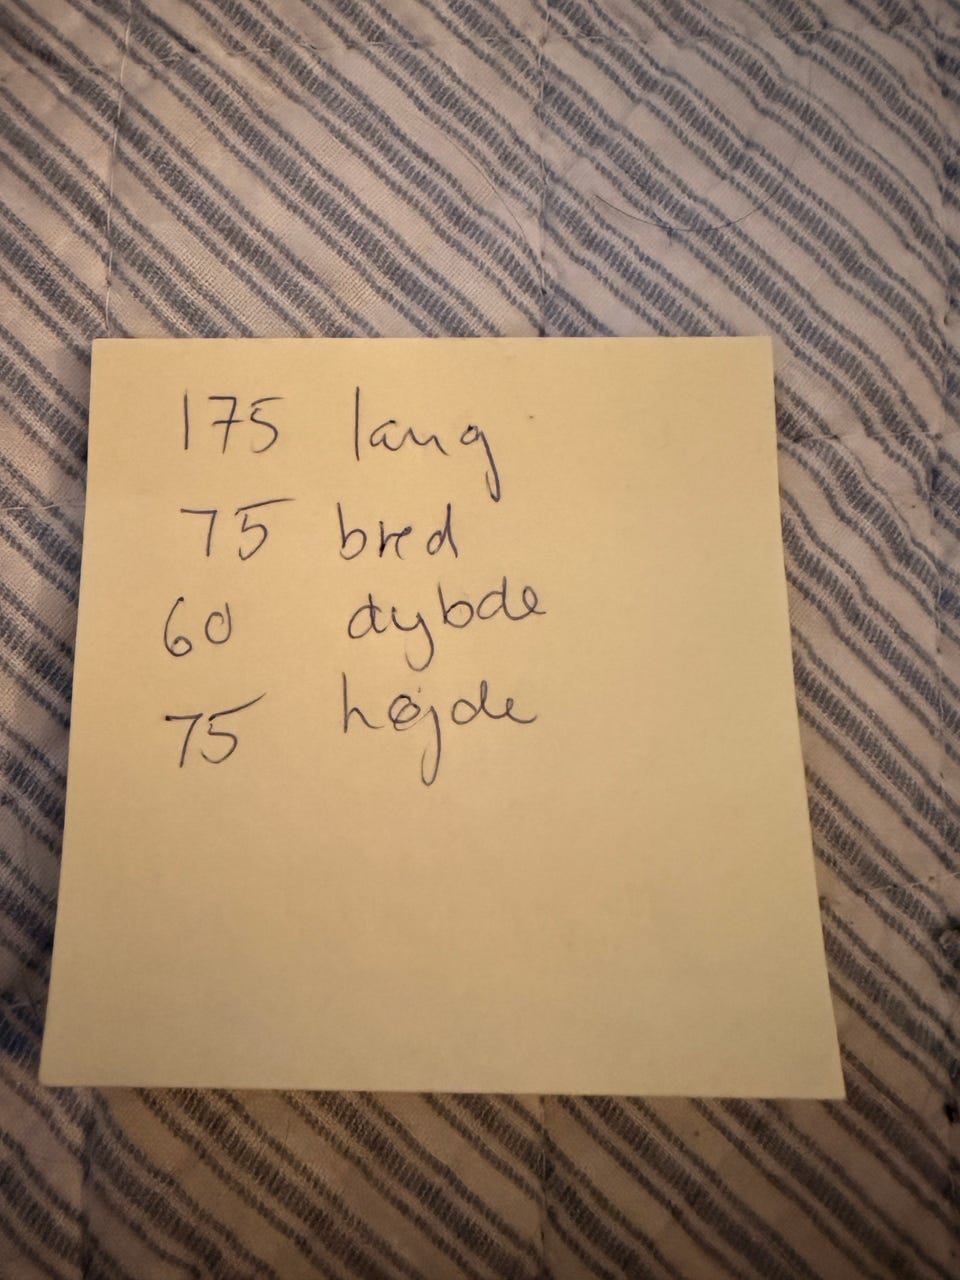 175 lang
75 bred
60 dybde
75 højde